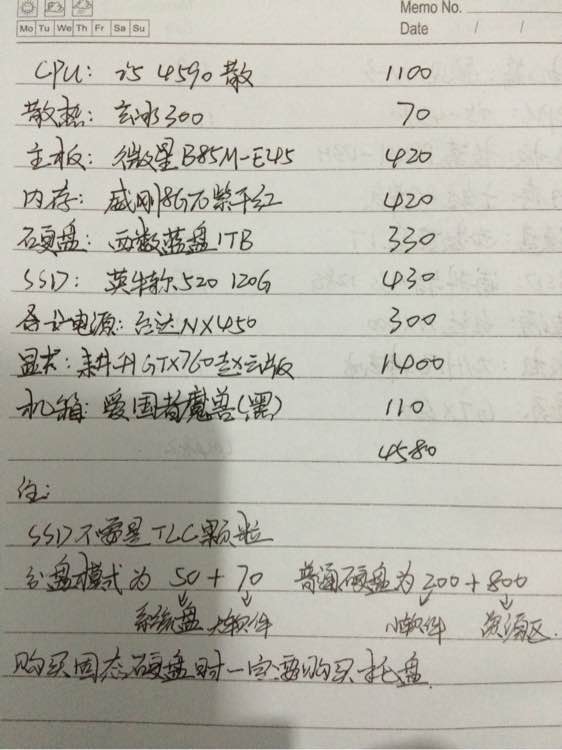 Memo No.
Mo Tu We Th Fr Sa Su
Date / /
CPU: i5 4590 散 1100
散热: 玄冰300 70
主板: 微星B85M-E45 420
内存: 威刚8G万紫千红 420
硬盘: 西数蓝盘1TB 330
SSD: 英特尔520 120G 430
电源: 台达NX450 300
显卡: 耕升GTX760 版 1400
机箱: 爱国者魔兽(黑) 110
4580
注:
SSD不要是TLC颗粒
分盘模式为 50 + 70 普通硬盘为200 + 800
系统盘 大软件 小软件 资源区.
购买固态硬盘时一定要购买托盘.